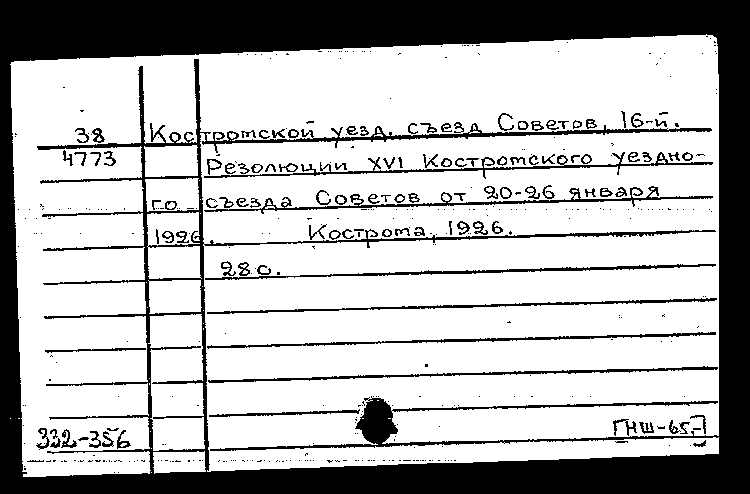 38
4773
Костромской уезд. съезд Советов, 16-й.
Резолюции XVI Костромского уездно-
го съезда Советов от 20-26 января
1926. Кострома, 1926.
28 с.
332-356
[НШ-65г]